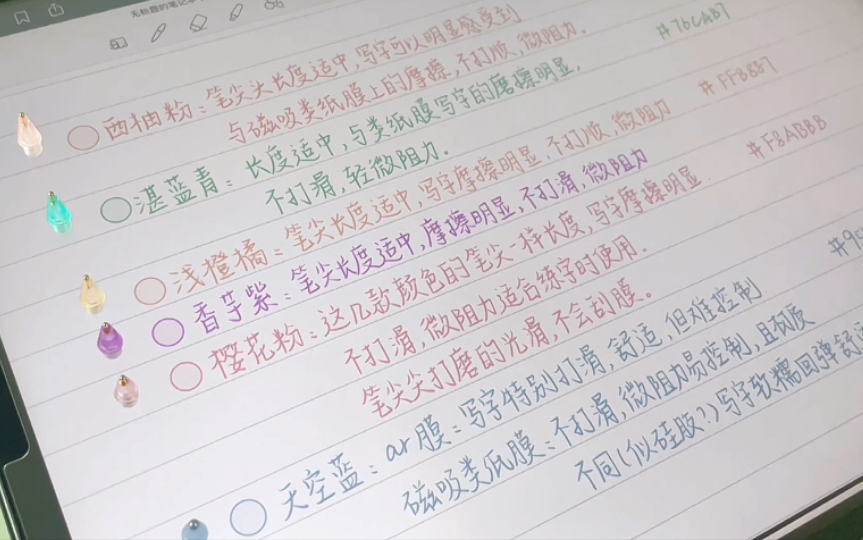 无标题的笔记本
西柚粉：笔尖头长度适中，写字可以明显感受到
与磁吸类纸膜上的摩擦，不打顺，微阻力．
#7bCAb7
湛蓝青：长度适中，与类纸膜写字的磨擦明显，
不打滑，轻微阻力．
#FF8887
浅橙橘：笔尖长度适中，写字摩擦明显，不打顺，微阻力
#F8ABBB
香芋紫：笔尖长度适中，摩擦明显，不打滑，微阻力
樱花粉：这几款颜色的笔尖一样长度，写字摩擦明显
不打滑，微阻力适合练字时使用．
笔尖尖打磨的光滑，不会刮膜。
天空蓝：ar膜：写字特别打滑，舒适，但难控制
磁吸类纸膜：不打滑，微阻力易控制，且材质
不同（似硅胶？）写字软糯回弹舒